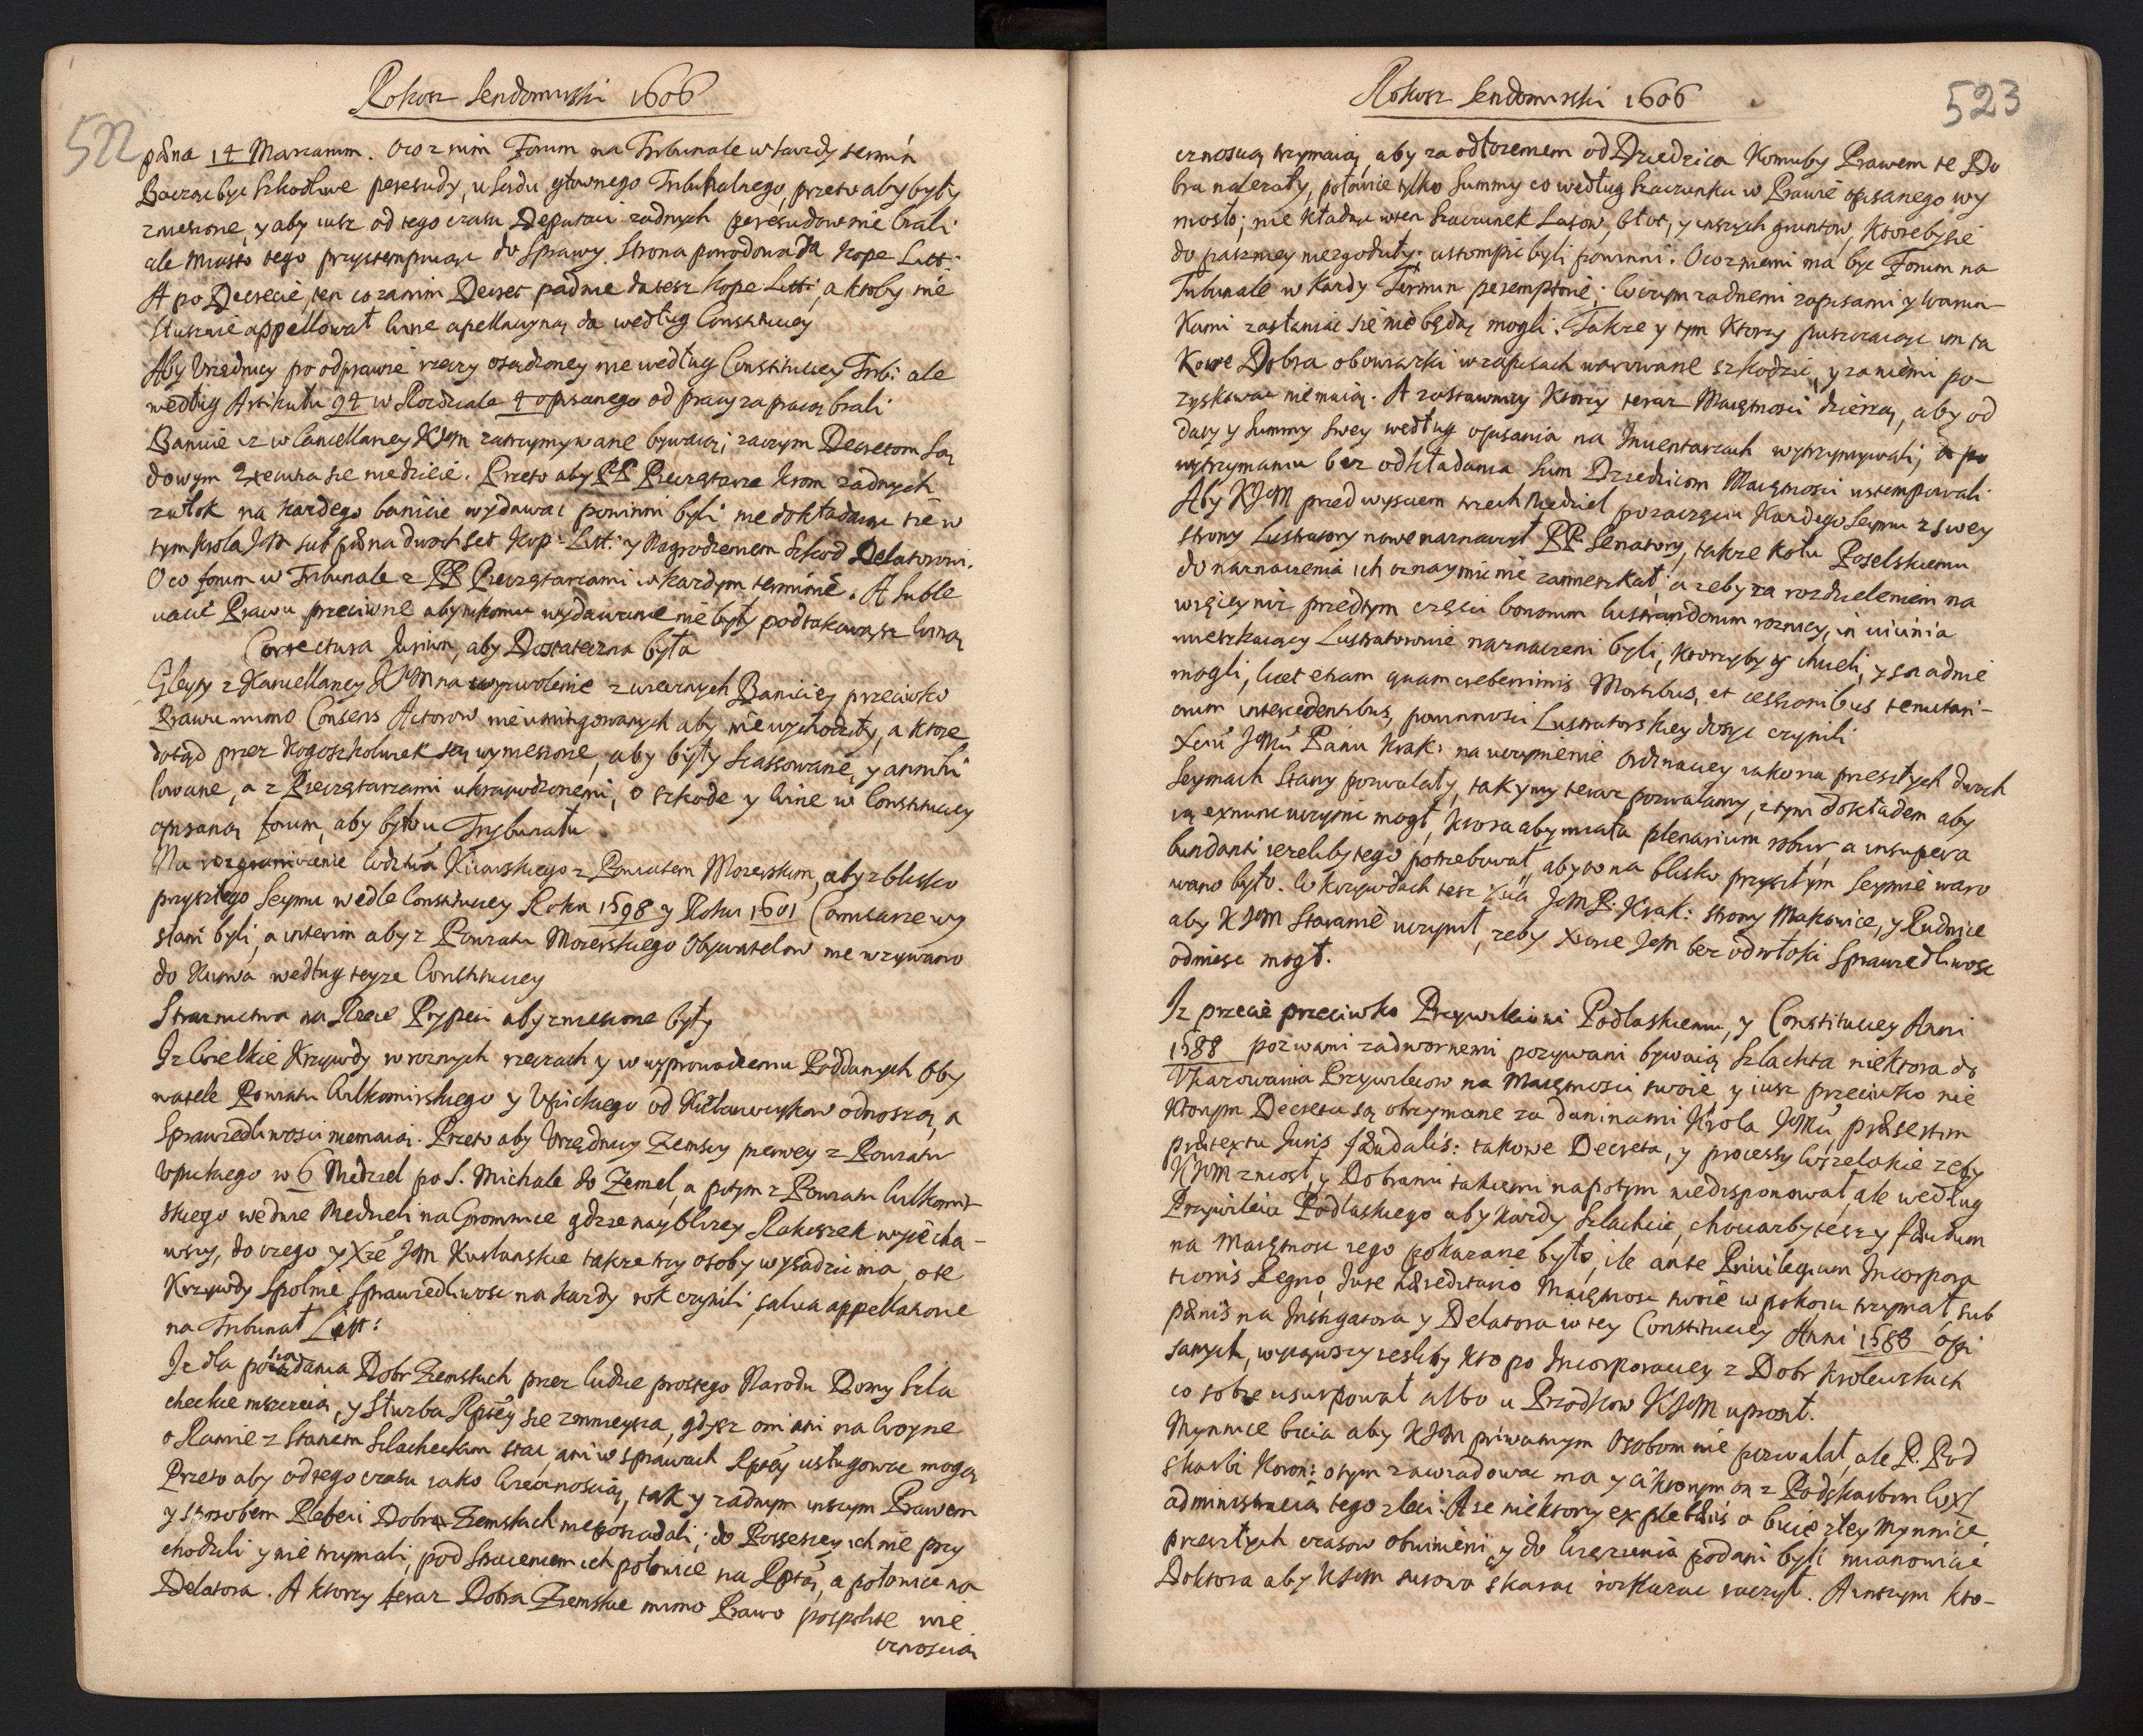 Rokosz Sendomirski 1606
522
pœna 14 Marcarum. Oco z nim Forum na Tribunale w kazdy termin
Baczac byc szkodliwe peresudy, u sądu głownego Tribunalnego, przeto aby były
zniesione, y aby iusz od tego czasu Deputaci zadnych peresudow nie brali
ale miasto tego przystempuiąc do Sprawy. Strona powodowa da kope Litt:
A po Decrecie, ten co za nim Decret padnie da tesz kope Litt:, a ktoby nie
słusznie appellował winę apellacyiną da według Constitucyey
Aby Urzędnicy po odprawie rzeczy osądzoney nie według Constitucyey Trib: ale
według Artikułu 94 w Rozdziale 4 opisanego od pracy zapłatę brali
Banicie iz w Cancellaryey KJM zatrzymywane bywaią, zaczym Decretom Są
dowym Execucia sie niedzieie. Przeto aby PP Pieczętarze krom żadnych
zwłok na kazdego banicie wydawac powinni byli nie dokładaiąc się w
tym krola JM sub pœna dwuch set kop Litt: y Nagrodzeniem szkod Delatorowi.
O co forum w Tribunale z PP Pieczętarzami w kazdym terminie. A suble
vacie Prawu przeciwne aby nikomu wydawane nie były pod takowąsz winą
Correctura Jurium, aby Dostateczna była
Gleyty z Kancellaryey KJM na wyzwolenie z wiecznych Baniciey przeciwko
Prawu mimo Consens Actorow nieumitygowanych aby nie wychodziły, a ktore
dotąd przez kogoszkolwiek są wyniesione, aby były skassowane, y annihi
lowane, a z Pieczętarzami ukrzywdzonemi, o szkode y winę w Constitucyey
opisaną forum, aby było u Trybunału
Na rozgraniczenie wodztwa Kiiowskiego z Powiatem Mozerskim, aby z blisko
przyszłego Seymu wedle Constitucyey Roku 1598 y Roku 1601 Comisarze wy
słani byli, a interim aby z Powiatu Mozerskiego Obywatelow nie wzywano
do Kiiowa według teyze Constitucyey
Straznictwa na Rzece Prypeci aby zniesione były
Iz Wielkie Krzywdy w roznych rzeczach y w wyprowadzeniu Poddanych Oby
watele Powiatu Wilkomirskiego y Upickiego od Kurlanczykow odnoszą, a
Sprawiedliwosci niemaią. Przeto aby Urzędnicy Ziemscy pierwey z Powiatu
Upickiego w 6 Niedziel po S. Michale do Zemel, a potym z Powiatu Wilkomir
skiego we dwie Niedzieli na Gromnice gdzie nayblizey Rakiszek wyiecha-
wszy, do czego y Xże JM Kurlanskie takze trzy osoby wysadzic ma, o te
Krzywdy spolnie Sprawiedliwosc na kazdy rok czynili, salva appellatione
na Tribunał Litt:
Iz dla posiadania Dobr Ziemskich przez ludzie prostego Narodu Domy Szla
checkie niszczeią, y słuzba Rptey sie zmnieysza, gdysz oni ani na Woynę
o Ramie z stanem Szlacheckim stac, ani w sprawach Rptey usługowac mogą
Przeto aby od tego czasu iako Wiecznoscią, tak y zadnym inszym Prawem
y sposobem Plebeii Dobr Ziemskich nieposiadali; do Possessyey ich nie przy
chodzili y nie trzymali, pod straceniem ich połowice na Rptą, a połowice na
Delatora. A ktorzy teraz Dobra Ziemskie mimo Prawo pospolite wie
cznoscią
Rokosz Sendomirski 1606
523
cznoscią trzymaią, aby za odłozeniem od Dziedzica komuby Prawem te Do
bra nalezały, połowie tylko Summy co według szacunku w Prawie opisanego wy
niosło; nie kładąc w ten szacunek Lasow, błot, y inszych gruntow, ktoreby się
do paszniey niezgodziły: ustompic byli powinni. Oco z niemi ma byc Forum na
Tribunale w kazdy Termin peremptorie; w czym zadnemi zapisami y warun-
kami zasłaniac się nie będą mogli. Takze y tym ktorzy puszczaiąc im ta
kowe Dobra obowiązki w zapisach warowane szkodzic, y za niemi po-
zyskiwac nie maią. A zastawnicy ktorzy teraz Maiętnosci dzierzą, aby od
daty y Summy swey według opisania na Inwentarzach wytrzymywali; a po
wytrzymaniu bez odkładania sum Dziedzicom Maiętnosci ustempowali
Aby KJM przed wysciem trzech Niedziel po zaczęciu kazdego Seymu z swey
strony Lustratory nowe naznaczył PP Senatory, takze kołu Poselskiemu
do naznaczenia ich oznaymic nie zamieszkał, a zeby za rozdzieleniem na
więcey niz przedtym częsci bonorum lustrandorum roznicy, in vicinia
mieszkaiący Lustratorowie naznaczeni byli, ktorzyby y chcieli, y snadnie
mogli, licet etiam quam creberrimis Mortibus, et cessionibus tenutari-
orum intercedentibus, powinnosci Lustratorskiey dosyc czynili
Xciu JMu Panu Krak: na uczynienie ordinacyey iako na przeszłych dwuch
Seymach Stany pozwalały, tak y my teraz pozwalamy, z tym dokładem aby
ią ex nunc uczynic mogł, ktora aby miała plenarium robur, a insupera
bundanti iezeliby tego potrzebował, aby to na blisko przyszłym Seymie waro
wano było. W krzywdach tesz Xcia JM P. Krak: strony Makowice, y Rudnice
aby KJM staranie uczynił, zeby Xiąże JM bez odwłoki Sprawiedliwosc
odniesc mogł.
Iz przecie przeciwko Przywileiowi Podlaskiemu, y Constitucyey Anni
1588 pozwami zadwornemi pozywani bywaią Szlachta niektora do
Ukazowania Przywileiow na Maiętnosci swoie y iusz przeciwko nie
ktorym Decreta są otrzymane za daninami Krola JoMci, præsertim
prætextu Juris fœudalis: takowe Decreta, y processy wszelakie zeby
KJM zniosł, y Dobrami takiemi napotym niedisponował, ale według
Przywileiu Podlaskiego aby kazdy Szlachcic, chociazby tesz y fœudum
na Maiętnosc iego pokazane było, ile ante Privilegium Incorpora
tionis Regno, Jure hæreditario Maiętnosc swoie w pokoiu trzymał, sub
pœnis na Instigatora y Delatora w tey Constitucyey Anni 1588 opi
sanych, wyiąwszy iesliby kto po Incorporacyey z Dobr krolewskich
co sobie usurpował albo u Przodkow KJM uprosił.
Mynnice bicia aby KJM priwatnym Osobom nie pozwalał, ale P. Pod
skarbi Koron: o tym zawiadowac ma y a ktorym on z Podskarbim WXL
administracią tego zleci. A ze niektorzy ex plebæis o bicie złey Mynnice
przeszłych czasow obwinieni, y do Więzienia podani byli mianowicie
Doktora aby KJM surowo skarac rozkazac raczył. A inszym kto-